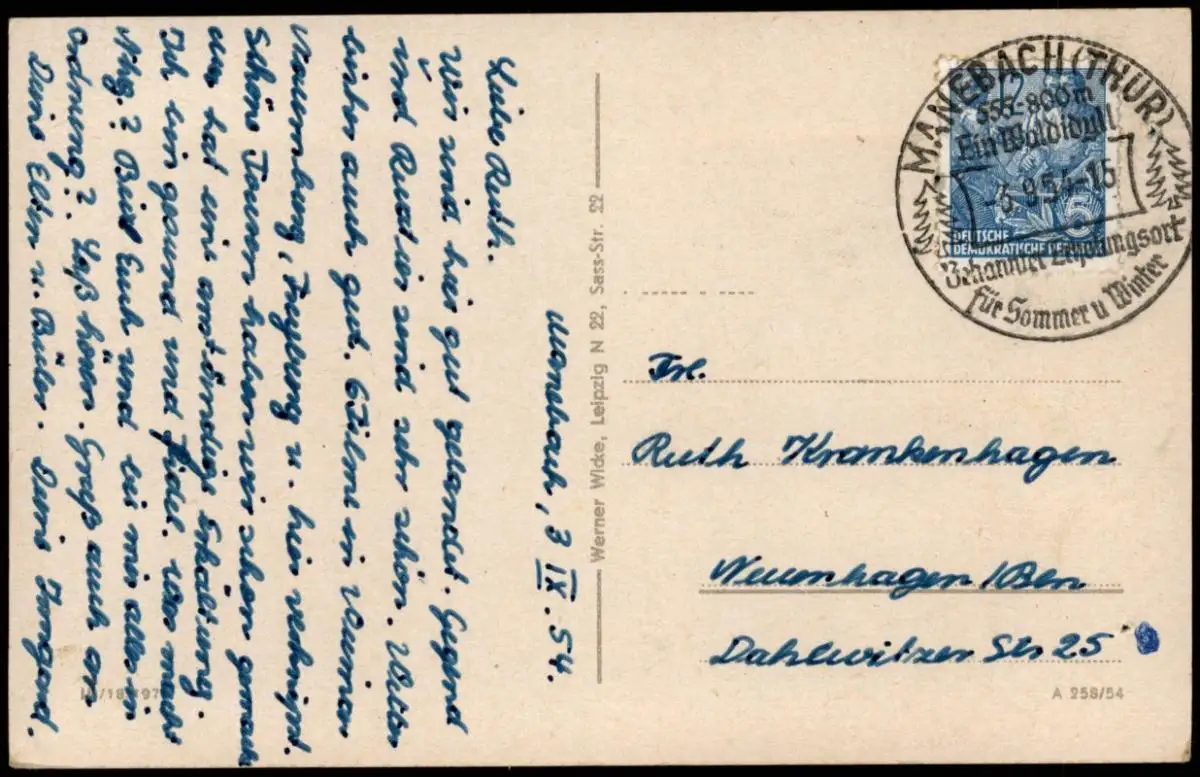 Manebach, 3 IX. 54.
Liebe Ruth.
Wir sind hier gut gelandet. Gegend
und Quartier sind sehr schön. Wetter
bisher auch gut. 6 Filme in Weimar
Naumburg, Freyburg u. hier verknipst.
Schöne Touren haben wir schon gemacht
hat eine anständige Erkältung.
Ich bin gesund und fidel. Was macht
Abg.? Bei Euch und bei mir alles in
Ordnung? Laß hören. Gruß auch an
Deine Eltern u. Brüder. Deine Irmgard.
Werner Wicke, Leipzig N 22, Sass-Str. 22
MANEBACH (THÜR).
555-800 m
Ein Waldidyll
-6.9.54-16
Bekannter Erholungsort
für Sommer u Winter
12
5
DEUTSCHE
DEMOKRATISCHE REP
Frl.
Ruth Krankenhagen
Neuenhagen/Bln
Dahlwitzer Str 25
A 258/54